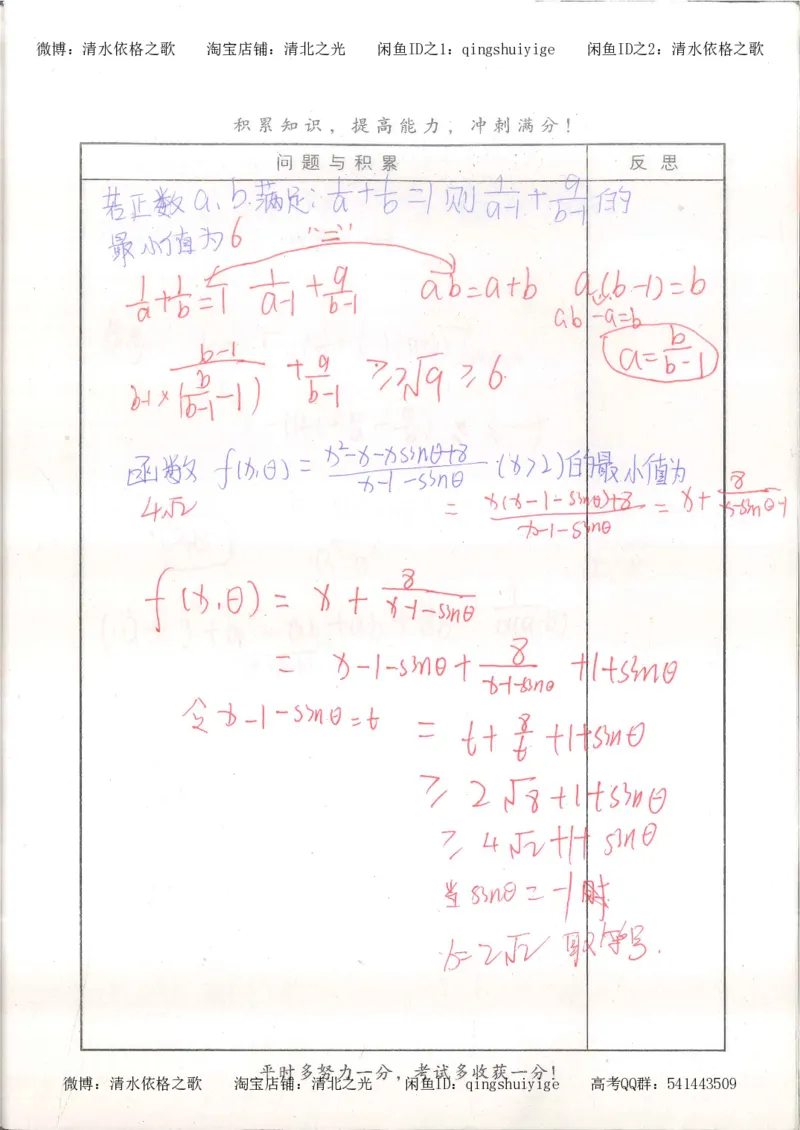 微博：清水依格之歌 淘宝店铺：清北之光 闲鱼ID之1：qingshuiyige 闲鱼ID之2：清水依格之歌
积累知识，提高能力，冲刺满分！
问题与积累 反思
若正数a、b满足：1/a+1/b=1则1/(a-1)+9/(b-1)的
最小值为6 "="
1/a+1/b=1 1/(a-1)+9/(b-1) ab=a+b a(b-1)=b
ab-a=b
a=b/(b-1)
(b-1)/(b-1×(b/(b-1)-1))+9/(b-1) ≥2√9≥6
函数f(x,θ)=(x²-x-xsinθ+8)/(x-1-sinθ)(x>2)的最小值为
4√2 =(x(x-1-sinθ)+8)/(x-1-sinθ)=x+8/(x-sinθ-1)
f(x,θ)=x+8/(x-1-sinθ)
=x-1-sinθ+8/(x-1-sinθ)+1+sinθ
令x-1-sinθ=t =t+8/t+1+sinθ
≥2√8+1+sinθ
≥4√2+1+sinθ
当sinθ=-1时
x=2√2取等号.
平时多努力一分，考试多收获一分！
微博：清水依格之歌 淘宝店铺：清北之光 闲鱼ID：qingshuiyige 高考QQ群：541443509